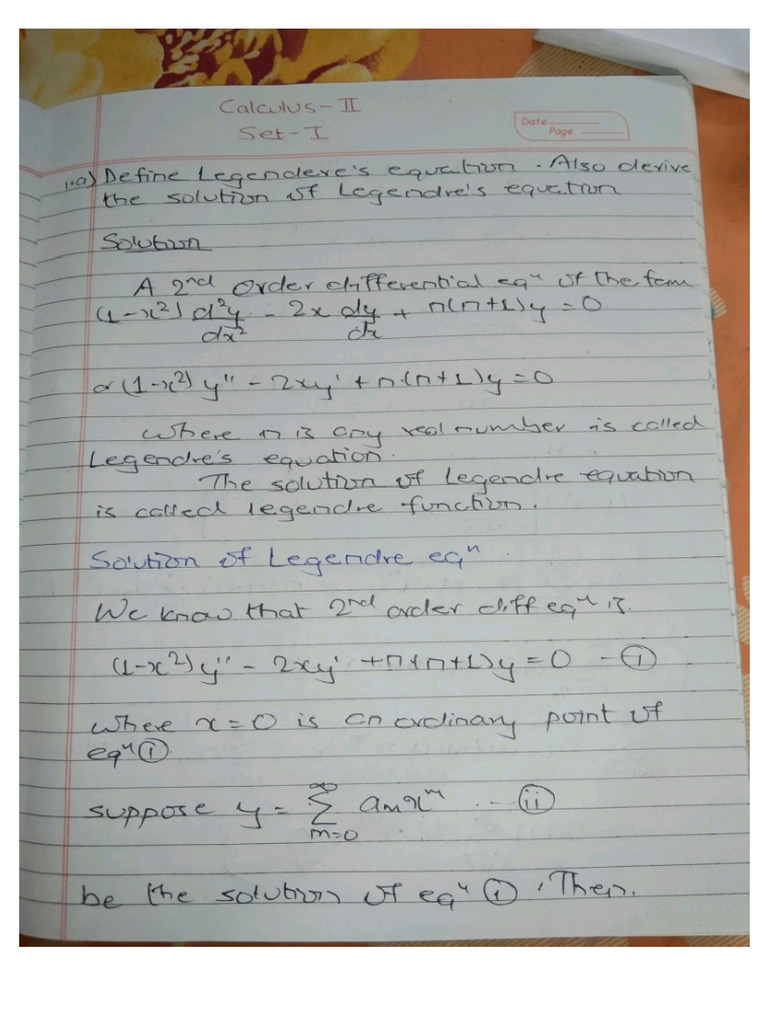 Calculus-II
Set-I
Date
Page
1.a) Define Legendere's equation. Also derive
the solution of Legendre's equation
Solution
A 2nd order differential eqn of the form
(1-x²) d²y/dx² - 2x dy/dx + n(n+1)y = 0
or (1-x²) y'' - 2xy' + n.(n+1)y = 0
where n is any real number is called
Legendre's equation.
The solution of legendre equation
is called legendre function.
Solution of Legendre eqn.
We know that 2nd order diff eqn is
(1-x²)y'' - 2xy' + n(n+1)y = 0 - (i)
where x=0 is an ordinary point of
eqn (i)
suppose y = ∞∑m=0 amxm -- (ii)
be the solution of eqn (i). Then.